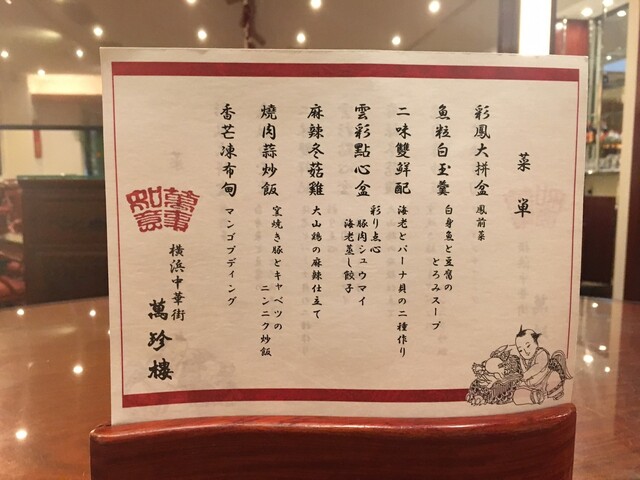 菜単
彩鳳大拼盆 鳳前菜
魚粒白玉羹 白身魚と豆腐の
とろみスープ
二味雙鮮配 海老とパーナ貝の二種作り
雲彩點心盒 彩り点心
豚肉シュウマイ
海老蒸し餃子
麻辣冬菇雞 大山鶏の麻辣仕立て
燒肉蒜炒飯 窯焼き豚とキャベツの
ニンニク炒飯
香芒凍布甸 マンゴプディング
萬事如意
横浜中華街
萬珍樓